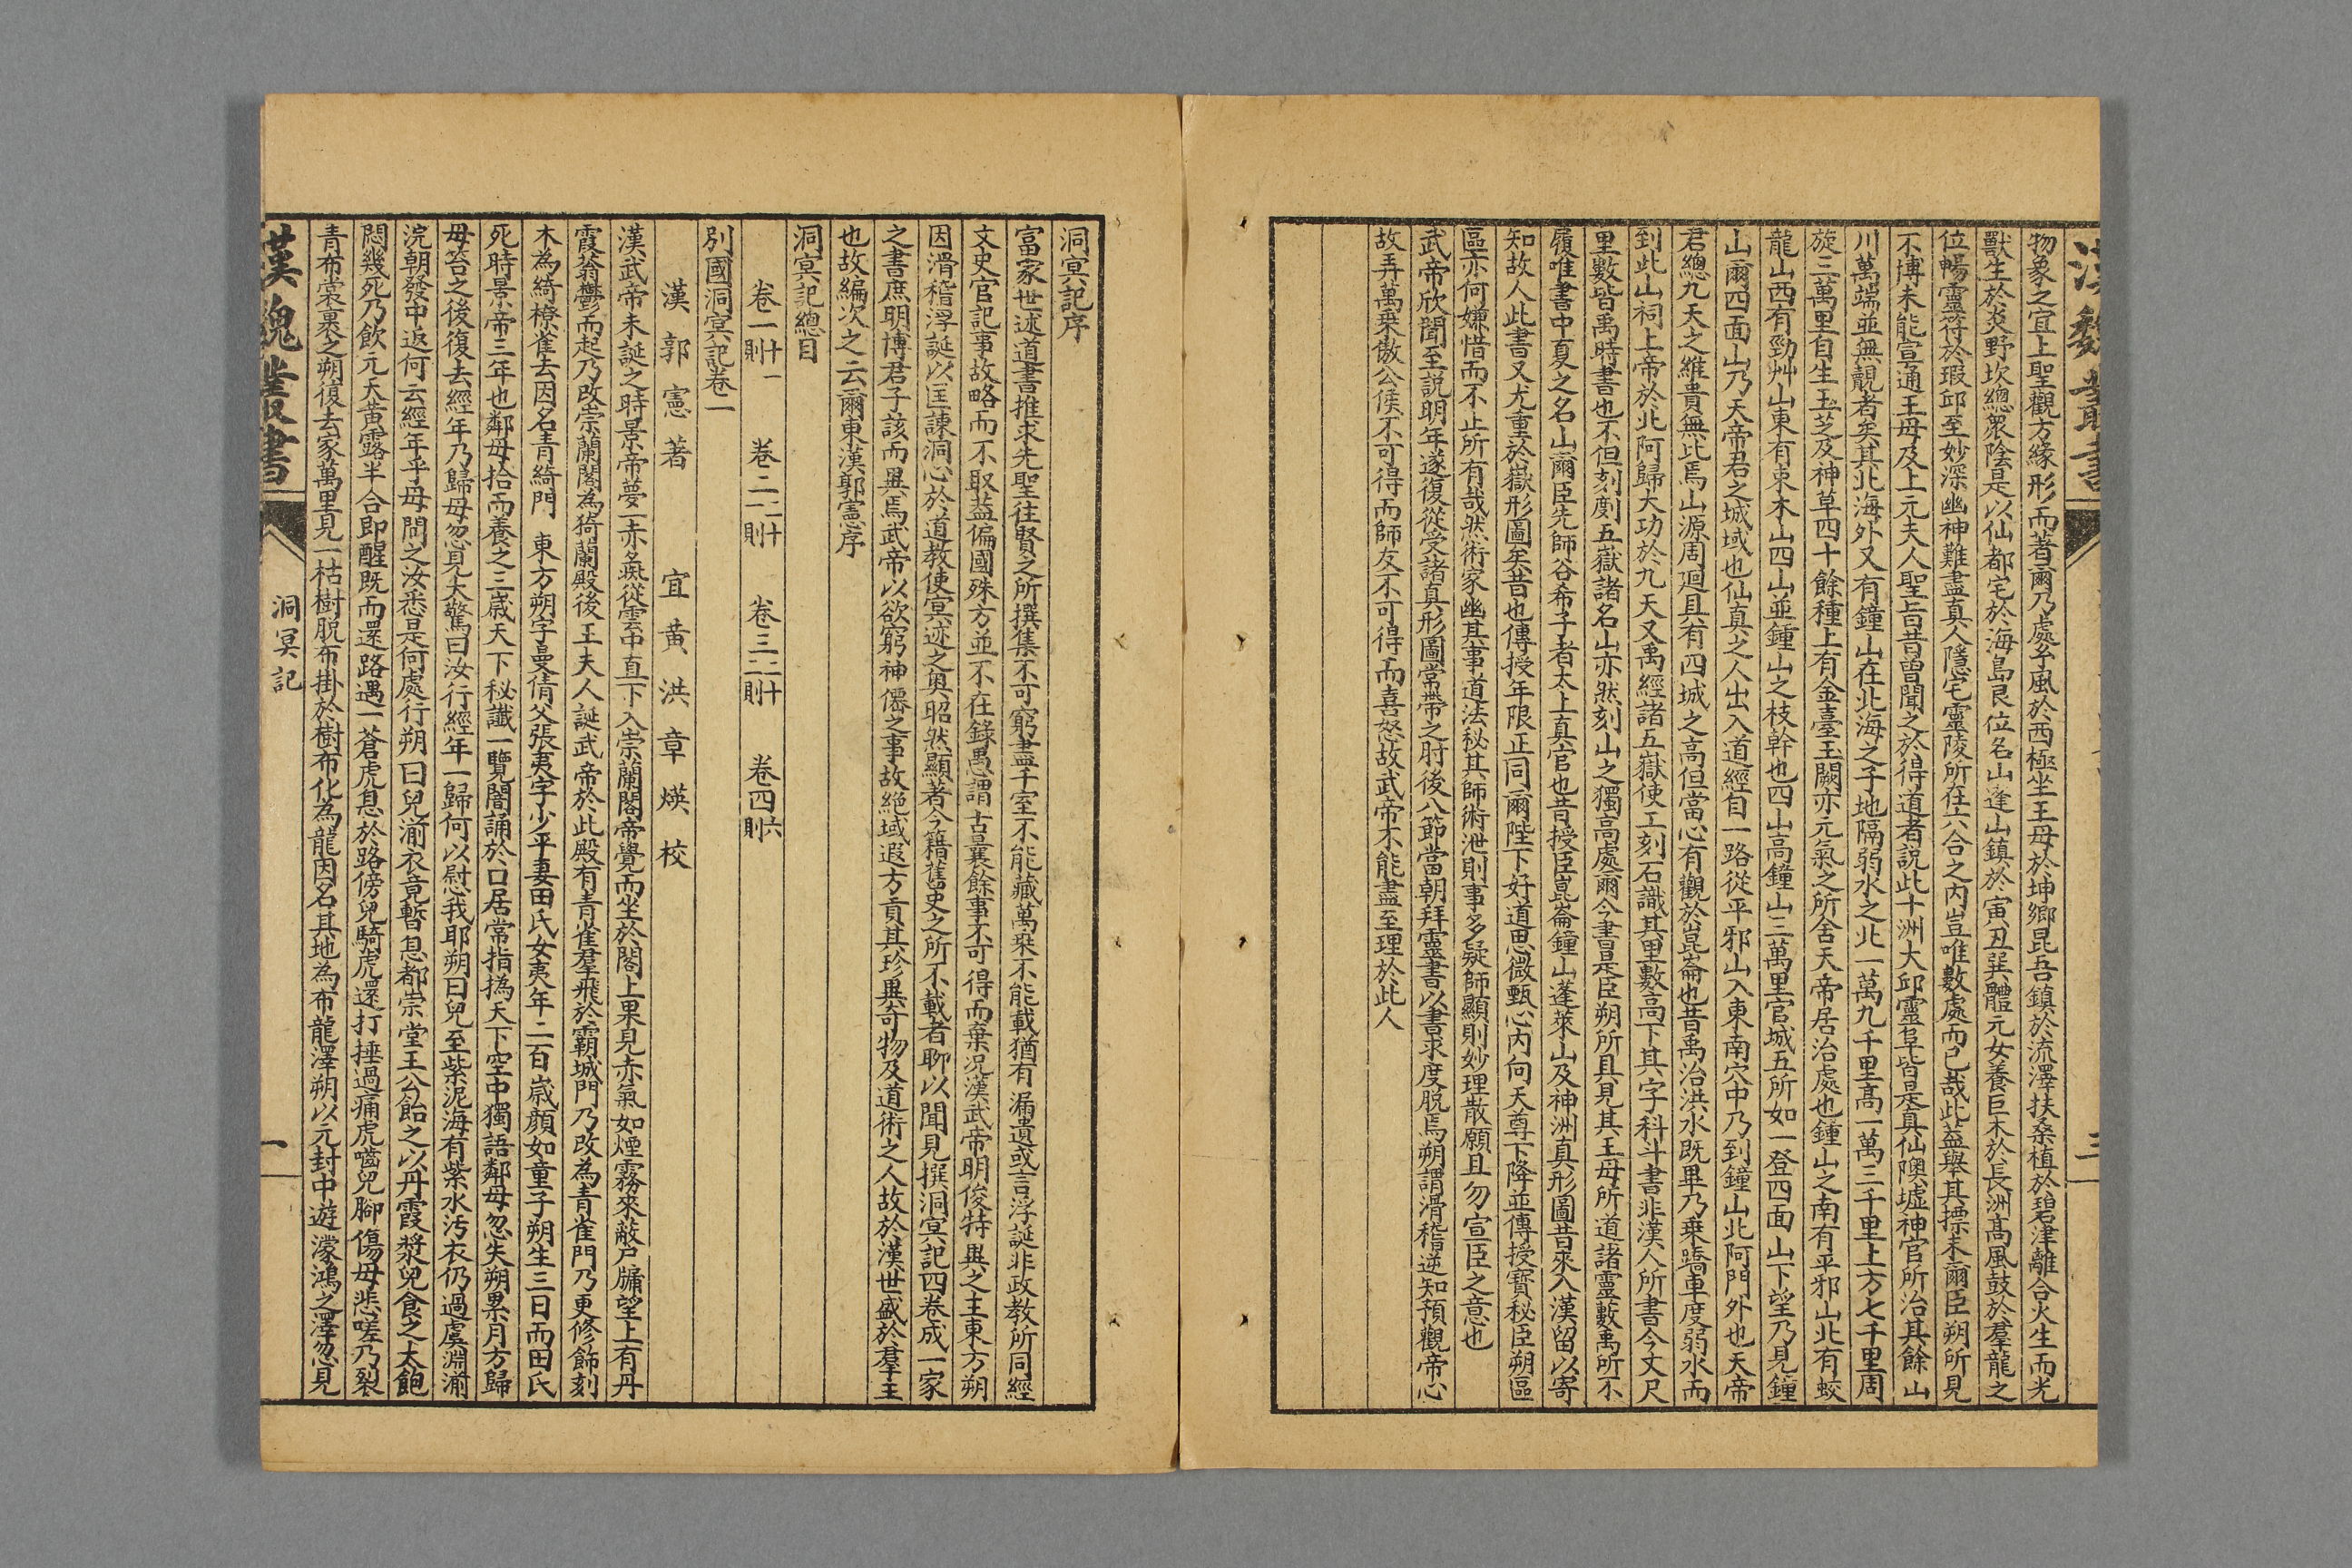 漢魏叢書
三
物象之宜上聖觀方緣形而著爾乃處乎風於西極坐王母於坤鄉昆吾鎮於流澤扶桑植於碧津離合火生而光
獸生於炎野坎總衆陰是以仙都宅於海島艮位名山逢山鎮於寅丑巽體元女養巨木於長洲高風鼓於羣龍之
位暢靈符於瑕邱至妙深幽神難盡真人隱宅靈陵所在六合之內豈唯數處而已哉此葢舉其摽末爾臣朔所見
不博未能宣通王母及上元夫人聖旨昔曾聞之於得道者說此十洲大邱靈阜皆是真仙隩墟神官所治其餘山
川萬端並無覩者矣其北海外又有鐘山在北海之子地隔弱水之北一萬九千里高一萬三千里上方七千里周
旋三萬里自生玉芝及神草四十餘種上有金臺玉闕亦元氣之所舍天帝居治處也鐘山之南有平邪山北有蛟
龍山西有勁艸山東有束木山四山並鐘山之枝幹也四山高鐘山三萬里官城五所如一登四面山下望乃見鐘
山爾四面山乃天帝君之城域也仙真之人出入道經自一路從平邪山入東南穴中乃到鐘山北阿門外也天帝
君總九天之維貴無比焉山源周迴具有四城之高但當心有觀於崑崙也昔禹治洪水既畢乃乗蹻車度弱水而
到此山祠上帝於北阿歸大功於九天又禹經諸五嶽使工刻石識其里數高下其字科斗書非漢人所書今丈尺
里數皆禹時書也不但刻劇五嶽諸名山亦然刻山之獨高處爾今書是臣朔所具見其王母所道諸靈藪禹所不
履唯書中夏之名山爾臣先師谷希子者太上真官也昔授臣崑崙鐘山蓬萊山及神洲真形圖昔來入漢留以寄
知故人此書又尤重於嶽形圖矣昔也傳授年限正同爾陛下好道思微甄心內向天尊下降並傳授寳秘臣朔區
區亦何嫌惜而不止所有哉然術家幽其事道法秘其師術泄則事多疑師顯則妙理散願且勿宣臣之意也
武帝欣聞至說明年遂復從受諸真形圖常帶之肘後八節當朝拜靈書以書求度脫焉朔謂滑稽逆知預觀帝心
故弄萬乗傲公侯不可得而師友不可得而喜怒故武帝不能盡至理於此人
洞冥記序
富家世述道書推求先聖往賢之所撰集不可窮盡千室不能藏萬乗不能載猶有漏遺或言浮誕非政教所同經
文史官記事故略而不取葢偏國殊方並不在錄愚謂古曩餘事不可得而棄况漢武帝明俊特異之主東方朔
因滑稽浮誕以匡諫洞心於道教使冥迹之奥昭然顯著今籍舊史之所不載者聊以聞見撰洞冥記四卷成一家
之書庶明博君子該而異焉武帝以欲窮神僊之事故絕域遐方貢其珍異奇物及道術之人故於漢世盛於羣主
也故編次之云爾東漢郭憲序
洞冥記總目
卷一十一則　卷二十二則　卷三十二則　卷四六則
別國洞冥記卷一
漢　郭憲著　宜黃洪章煐校
漢武帝未誕之時景帝夢一赤彘從雲中直下入崇蘭閣帝覺而坐於閣上果見赤氣如煙霧來蔽戶牖望上有丹
霞蓊鬱而起乃改崇蘭閣為猗蘭殿後王夫人誕武帝於此殿有青雀羣飛於霸城門乃改為青雀門乃更修飾刻
木為綺橑雀去因名青綺門　東方朔字曼倩父張夷字少平妻田氏女夷年二百歲顏如童子朔生三日而田氏
死時景帝三年也鄰母拾而養之三歲天下秘讖一覽闇誦於口居常指撝天下空中獨語鄰母忽失朔累月方歸
母笞之後復去經年乃歸母忽見大驚曰汝行經年一歸何以慰我耶朔曰兒至紫泥海有紫水汚衣仍過虞淵湔
浣朝發中返何云經年乎母問之汝悉是何處行朔曰兒湔衣竟暫息都崇堂王公飴之以丹霞漿兒食之太飽
悶幾死乃飲元天黃露半合即醒既而還路遇一蒼虎息於路傍兒騎虎還打捶過痛虎嚙兒腳傷母悲嗟乃裂
青布裳裹之朔復去家萬里見一枯樹脫布掛於樹布化為龍因名其地為布龍澤朔以元封中遊濛鴻之澤忽見
漢魏叢書
洞冥記
一